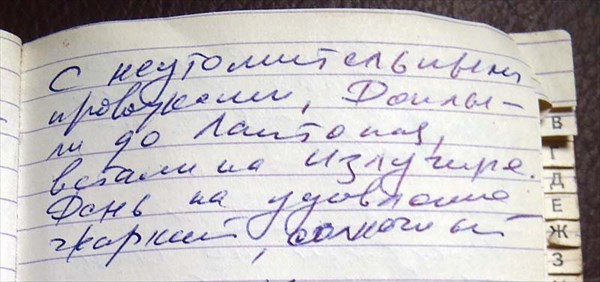 с неутомительными
проводками, Доплы-
ли до Лаптопа,
встали на излучине.
День на удивление
жаркий, солнечный
В
Г
Д
Е
Ж
З